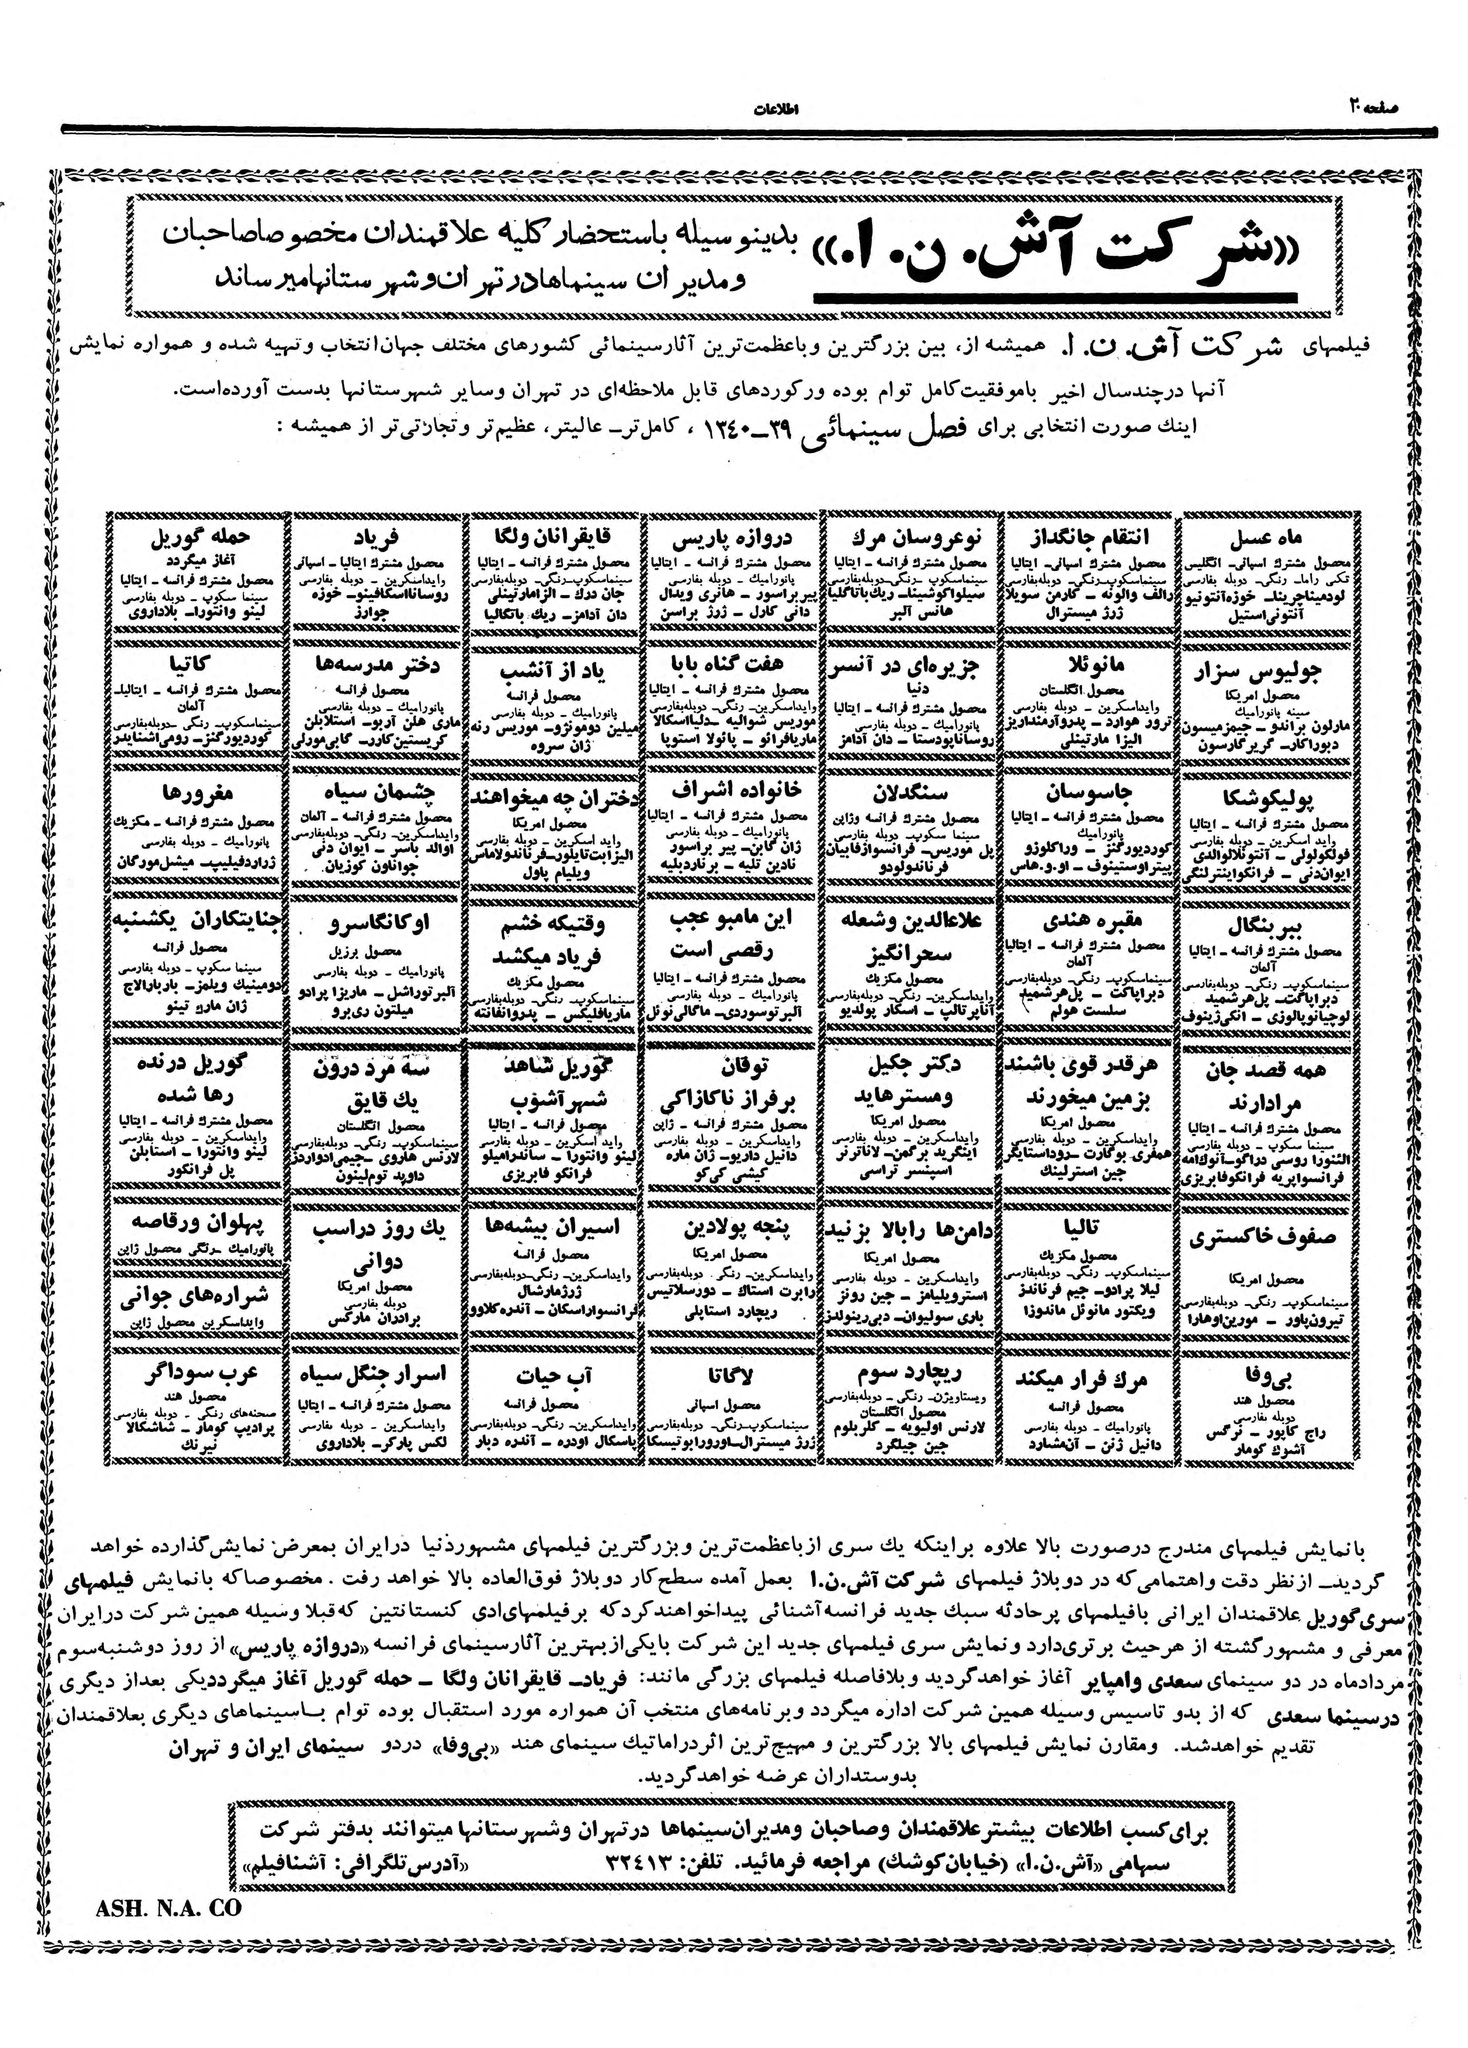 صفحه ۲۰
اطلاعات
«شرکت آش. ن. ا.»
بدینوسیله باستحضار کلیه علاقمندان مخصوصا صاحبان
و مدیران سینماها در تهران و شهرستانها میرساند
فیلمهای شرکت آش. ن. ا. همیشه از، بین بزرگترین و باعظمت‌ترین آثار سینمائی کشورهای مختلف جهان انتخاب و تهیه شده و همواره نمایش
آنها در چند سال اخیر با موفقیت کامل توام بوده و رکوردهای قابل ملاحظه‌ای در تهران و سایر شهرستانها بدست آورده‌است.
اینك صورت انتخابی برای فصل سینمائی ۳۹–۱۳۴۰، کامل‌تر– عالیتر، عظیم‌تر و تجارتی‌تر از همیشه :
ماه عسل
محصول مشترك اسپانی- انگلیس
تکنی راما- رنگی- دوبله بفارسی
لودمیناچرینا- خوزه آنتونیو
آنتونی استیل
انتقام جانگداز
محصول مشترك اسپانی- ایتالیا
سینماسکوپ-رنگی- دوبله‌بفارسی
رالف والونه - کارمن سویلا
ژرژ میسترال
نوعروسان مرك
محصول مشترك فرانسه - ایتالیا
سینماسکوپ -رنگی- دوبله‌بفارسی
سیلواکوشینا- ریك باتاگلیا
هانس آلبر
دروازه پاریس
محصول مشترك فرانسه - ایتالیا
پانورامیك - دوبله بفارسی
پیر براسور - هانری ویدال
دانی کارل - ژرژ براسن
قایقرانان ولگا
محصول مشترك فرانسه - ایتالیا
سینماسکوپ-رنگی- دوبله‌بفارسی
جان درك - الزامارتینلی
دان آدامز- ریك باتگالیا
فریاد
محصول مشترك ایتالیا - اسپانی
وایداسکرین - دوبله بفارسی
روسانا اسکافینو- خوزه
جوارز
حمله گوریل
آغاز میگردد
محصول مشترك فرانسه - ایتالیا
سینما سکوپ - دوبله بفارسی
لینو وانتورا- بلاداروی
جولیوس سزار
محصول امریکا
سینه پانورامیك
مارلون براندو - جیمزمیسون
دبوراکار- گریر گارسون
مانوئلا
محصول انگلستان
وایداسکرین - دوبله بفارسی
ترور هوارد - پدروآرمنداریز
الیزا مارتینلی
جزیره‌ای در آنسر
دنیا
محصول مشترك فرانسه - ایتالیا
پانورامیك - دوبله بفارسی
روساناپودستا - دان آدامز
هفت گناه بابا
محصول مشترك فرانسه - ایتالیا
وایداسکرین-رنگی- دوبله‌بفارسی
موریس شوالیه - دلیااسکالا
ماریافرائو - پائولا استوپا
یاد از آنشب
محصول فرانسه
پانورامیك - دوبله بفارسی
میلین دومونژو- موریس رنه
ژان سروه
دختر مدرسه‌ها
محصول فرانسه
پانورامیك - دوبله بفارسی
ماری هلن آربو- استلابلن
کریستین کارر- گابی‌مورلی
کاتیا
محصول مشترك فرانسه - ایتالیا-
آلمان
سینماسکوپ- رنگی -دوبله‌بفارسی
کوردیورگنز- رومی‌اشنایدر
پولیکوشکا
محصول مشترك فرانسه - ایتالیا
واید اسکرین - دوبله بفارسی
فولکولولی - آنتونلالوالدی
ایوان‌دنی - فرانکواینترلنگی
جاسوسان
محصول مشترك فرانسه - ایتالیا
پانورامیك
کوردیورگنز - وراکلوزو
پیتراوستینوف - او.و.هاس
سنگدلان
محصول مشترك فرانسه وژاپن
سینما سکوپ - دوبله بفارسی
پل موریس- فرانسوازفابیان
فرناندولودو
خانواده اشراف
محصول مشترك فرانسه - ایتالیا
پانورامیك - دوبله بفارسی
ژان گابن- پیر براسور
نادین تلیه - برناردبلیه
دختران چه میخواهند
محصول امریکا
وایداسکرین - دوبله بفارسی
الیزابت تایلور-فرناندولاماس
ویلیام پاول
چشمان سیاه
محصول مشترك فرانسه - آلمان
وایداسکرین- رنگی- دوبله‌بفارسی
اوالد باسر - ایوان دنی
جواناون کوزیان
مغرورها
محصول مشترك فرانسه - مکزیك
پانورامیك - دوبله بفارسی
ژراردفیلیپ- میشل‌مورگان
ببر بنگال
محصول مشترك فرانسه - ایتالیا
آلمان
سینماسکوپ- رنگی- دوبله‌بفارسی
دبراپاگت- پل هرشمید
لوچیانوپالوزی - انکی‌ژینوف
مقبره هندی
محصول مشترك فرانسه - ایتالیا
آلمان
سینماسکوپ- رنگی- دوبله‌بفارسی
دبراپاگت - پل‌هرشمید
سلست هولم
علاءالدین وشعله
سحرانگیز
محصول مکزیك
وایداسکرین- رنگی- دوبله‌بفارسی
آناپرتالپ - اسکار پولدیو
این مامبو عجب
رقصی است
محصول مشترك فرانسه - ایتالیا
پانورامیك - دوبله بفارسی
آلبرتوسوردی- ماگالی نوئل
وقتیکه خشم
فریاد میکشد
محصول مکزیك
سینماسکوپ- رنگی- دوبله‌بفارسی
ماریافلیکس - پدروانفانته
اوکانگاسرو
محصول برزیل
پانورامیك - دوبله بفارسی
آلبرتوراشل- ماریزا پرادو
میلتون ری‌برو
جنایتکاران یکشنبه
محصول فرانسه
سینما سکوپ - دوبله بفارسی
دومینیك ویلمز- باربارالاج
ژان مارو تینو
همه قصد جان
مرادارند
محصول مشترك فرانسه - ایتالیا
سینما سکوپ - دوبله بفارسی
النورا روسی دراگو-آنوك‌امه
فرانسواپریه فرانکوفابریزی
هرقدر قوی باشند
بزمین میخورند
محصول امریکا
وایداسکرین - دوبله بفارسی
همفری بوگارت -روداستایگر
جین استرلینك
دکتر جکیل
ومستر هاید
محصول امریکا
وایداسکرین - دوبله بفارسی
اینگرید برگمن- لاناترنر
اسپنسر تراسی
توفان
برفراز ناکازاکی
محصول مشترك فرانسه - ژاپن
وایداسکرین - دوبله بفارسی
دانیل داریو- ژان ماره
کیشی کی‌کو
گوریل شاهد
شهرآشوب
محصول فرانسه - ایتالیا
واید اسکرین - دوبله بفارسی
لینو وانتورا - ساندرامیلو
فرانکو فابریزی
سه مرد درون
یك قایق
محصول انگلستان
سینماسکوپ- رنگی- دوبله‌بفارسی
لارنس هاروی -جیمی‌ادواردز
داوید توم‌لینون
گوریل درنده
رها شده
محصول مشترك فرانسه - ایتالیا
وایداسکرین - دوبله بفارسی
لینو وانتورا - استابلن
پل فرانکور
صفوف خاکستری
محصول امریکا
سینماسکوپ- رنگی- دوبله‌بفارسی
تیرون‌پاور - مورین‌اوهارا
تالیا
محصول مکزیك
سینماسکوپ- رنگی- دوبله‌بفارسی
لیلا پرادو- جیم فرناندز
ویکتور مانوئل ماندوزا
دامن‌ها رابالا بزنید
محصول امریکا
وایداسکرین - دوبله بفارسی
استرویلیامز - جین رونز
باری سولیوان- دبی‌رینولدز
پنجه پولادین
محصول امریکا
وایداسکرین- رنگی. دوبله‌بفارسی
رابرت استاك - دورسلاتیس
ریچارد استاپلی
اسیران بیشه‌ها
محصول فرانسه
وایداسکرین- رنگی-دوبله‌بفارسی
ژرژمارشال
فرانسواراسکان - آندره‌کلاوو
یك روز دراسب
دوانی
محصول امریکا
دوبله بفارسی
برادران مارکس
پهلوان ورقاصه
پانورامیك -رنگی محصول ژاپن
شراره‌های جوانی
وایداسکرین محصول ژاپن
بی‌وفا
محصول هند
دوبله بفارسی
راج کاپور - نرگس
آشوك کومار
مرك فرار میکند
محصول فرانسه
پانورامیك - دوبله بفارسی
دانیل ژلن - آن‌مشارد
ریچارد سوم
ویستاویژن- رنگی - دوبله‌بفارسی
محصول انگلستان
لارنس اولیویه - کلربلوم
جین جیلگرد
لاگاتا
محصول اسپانی
سینماسکوپ-رنگی- دوبله‌بفارسی
ژرژ میسترال-اورورابوتیسکا
آب حیات
محصول فرانسه
وایداسکرین-رنگی- دوبله‌بفارسی
پاسکال اودره - آندره دبار
اسرار جنگل سیاه
محصول مشترك فرانسه - ایتالیا
وایداسکرین - دوبله بفارسی
لکس پارکر- بلاداروی
عرب سوداگر
محصول هند
صحنه‌های رنگی - دوبله بفارسی
پرادیپ کومار- شاشکالا
نیرنك
بانمایش فیلمهای مندرج درصورت بالا علاوه براینکه یك سری ازباعظمت‌ترین وبزرگترین فیلمهای مشهوردنیا درایران بمعرض نمایش گذارده خواهد
گردید– ازنظر دقت واهتمامی‌که در دوبلاژ فیلمهای شرکت آش.ن.ا بعمل آمده سطح‌کار دوبلاژ فوق‌العاده بالا خواهد رفت . مخصوصاکه بانمایش فیلمهای
سری‌گوریل علاقمندان ایرانی بافیلمهای پرحادثه سبك جدید فرانسه‌آشنائی پیداخواهندکردکه برفیلمهای‌ادی کنستانتین که‌قبلا وسیله همین شرکت درایران
معرفی و مشهورگشته از هرحیث برتری‌دارد ونمایش سری فیلمهای جدید این شرکت بایکی‌ازبهترین آثارسینمای فرانسه «دروازه پاریس» از روز دوشنبه‌سوم
مردادماه در دو سینمای سعدی وامپایر آغاز خواهدگردید وبلافاصله فیلمهای بزرگی مانند: فریاد- قایقرانان ولگا - حمله گوریل آغاز میگرددیکی بعداز دیگری
درسینما سعدی که از بدو تاسیس وسیله همین شرکت اداره میگردد وبرنامه‌های منتخب آن همواره مورد استقبال بوده توام بـاسینماهای دیگری بعلاقمندان
تقدیم خواهدشد. ومقارن نمایش فیلمهای بالا بزرگترین و مهیج‌ترین اثردراماتیك سینمای هند «بی‌وفا» دردو سینمای ایران و تهران
بدوستداران عرضه خواهدگردید.
برای‌کسب اطلاعات بیشترعلاقمندان وصاحبان ومدیران‌سینماها درتهران وشهرستانها میتوانند بدفتر شرکت
سهامی «آش.ن.ا» (خیابان‌کوشك) مراجعه فرمائید. تلفن: ۳۲۴۱۳ «آدرس‌تلگرافی: آشنافیلم»
ASH. N.A. CO